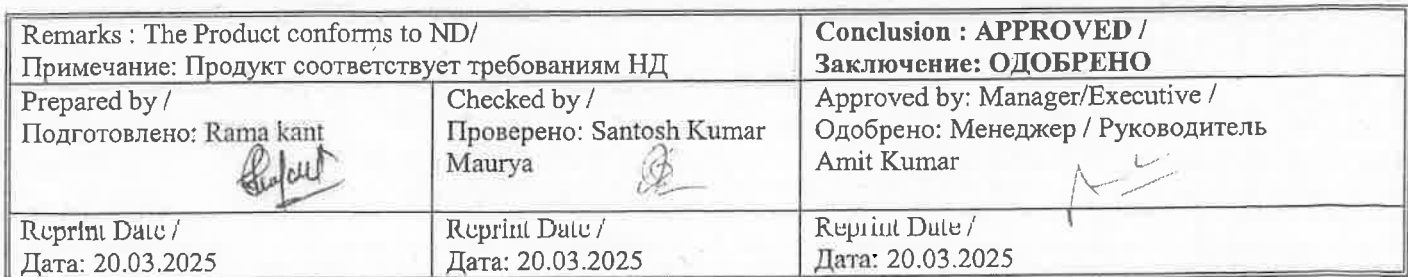 Remarks : The Product conforms to ND/
Примечание: Продукт соответствует требованиям НД
Conclusion : APPROVED /
Заключение: ОДОБРЕНО
Prepared by /
Подготовлено: Rama kant
Checked by /
Проверено: Santosh Kumar
Maurya
Approved by: Manager/Executive /
Одобрено: Менеджер / Руководитель
Amit Kumar
Reprint Date /
Дата: 20.03.2025
Reprint Date /
Дата: 20.03.2025
Reprint Date /
Дата: 20.03.2025